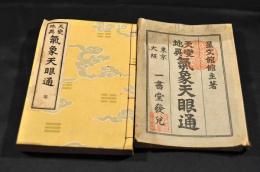 天變
地異
氣象天眼通
天變
地異
氣象天眼通
館主著
東京
大阪
一書堂發兌